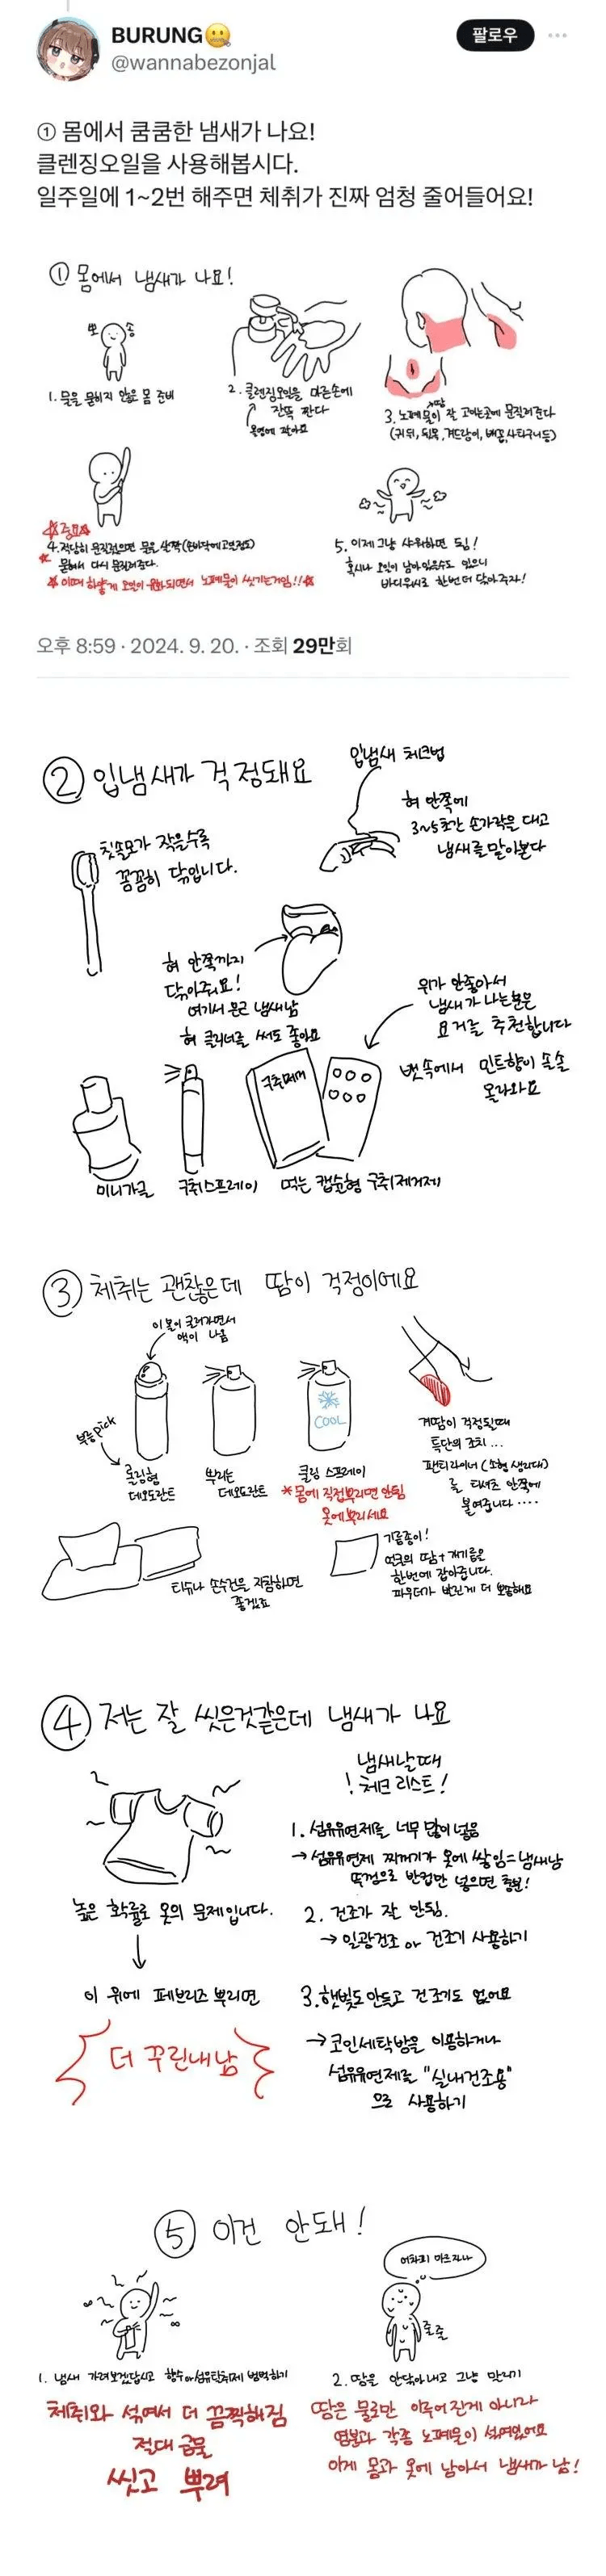 BURUNG
@wannabezonjal
팔로우
① 몸에서 쿰쿰한 냄새가 나요!
클렌징오일을 사용해봅시다.
일주일에 1~2번 해주면 체취가 진짜 엄청 줄어들어요!
① 몸에서 냄새가 나요!
뽀송
1. 물을 묻히지 않은 몸 준비
2. 클렌징오일을 마른손에
잔뜩 짠다
3. 노폐물이 잘 고이는곳에 문질러준다
땀
(귀 뒤, 뒷목, 겨드랑이, 배꼽, 사타구니 등)
☆중요☆
4. 적당히 문질렀으면 물을 살짝(손바닥에 고일정도)
묻혀서 다시 문질러준다.
☆ 이때 하얗게 오일이 유화되면서 노폐물이 씻기는거임!!☆
5. 이제 그냥 샤워하면 됨!
혹시나 오일이 남아있을수도 있으니
바디워시로 한번 더 닦아주자!
오후 8:59 · 2024. 9. 20. · 조회 29만회
② 입냄새가 걱정돼요
입냄새 체크법
혀 안쪽에
3~5초간 손가락을 대고
냄새를 맡아본다
칫솔모가 작을수록
꼼꼼히 닦입니다.
혀 안쪽까지
닦아주세요!
여기서 은근 냄새남
혀 클리너를 써도 좋아요
위가 안좋아서
냄새가 나는분은
요거를 추천합니다
뱃속에서 민트향이 솔솔
올라와요
구취제거
미니가글
구취스프레이
먹는 캡슐형 구취제거제
③ 체취는 괜찮은데 땀이 걱정이에요
이 볼이 굴러가면서
액이 나옴
부릉pick
롤링형
데오도란트
뿌리는
데오도란트
COOL
쿨링 스프레이
*몸에 직접뿌리면 안됨
옷에뿌리세요
겨땀이 걱정될때
특단의 조치...
팬티라이너(소형 생리대)
를 티셔츠 안쪽에
붙여줍니다....
티슈나 손수건을 지참하면
좋겠죠
기름종이!
얼굴의 땀+개기름을
한번에 잡아줍니다.
파우더가 발린게 더 뽀송해요
④ 저는 잘 씻은것같은데 냄새가 나요
냄새날때
! 체크 리스트!
1. 섬유유연제를 너무 많이 넣음
→ 섬유유연제 찌꺼기가 옷에 쌓임=냄새남
뚜껑으로 반컵만 넣으면 충분!
높은 확률로 옷의 문제입니다.
2. 건조가 잘 안됨.
→ 일광건조 or 건조기 사용하기
이 위에 페브리즈 뿌리면
더 꾸린내남
3. 햇빛도 안들고 건조기도 없어요
→ 코인세탁방을 이용하거나
섬유유연제를 "실내건조용"
으로 사용하기
⑤ 이건 안돼!
어차피 마르자나
줄줄
1. 냄새 가려보겠답시고 향수or섬유탈취제 범벅하기
체취와 섞여서 더 끔찍해짐
절대 금물
씻고 뿌려
2. 땀을 안닦아내고 그냥 말리기
땀은 물로만 이루어진게 아니라
염분과 각종 노폐물이 섞여있어요
이게 몸과 옷에 남아서 냄새가 남!